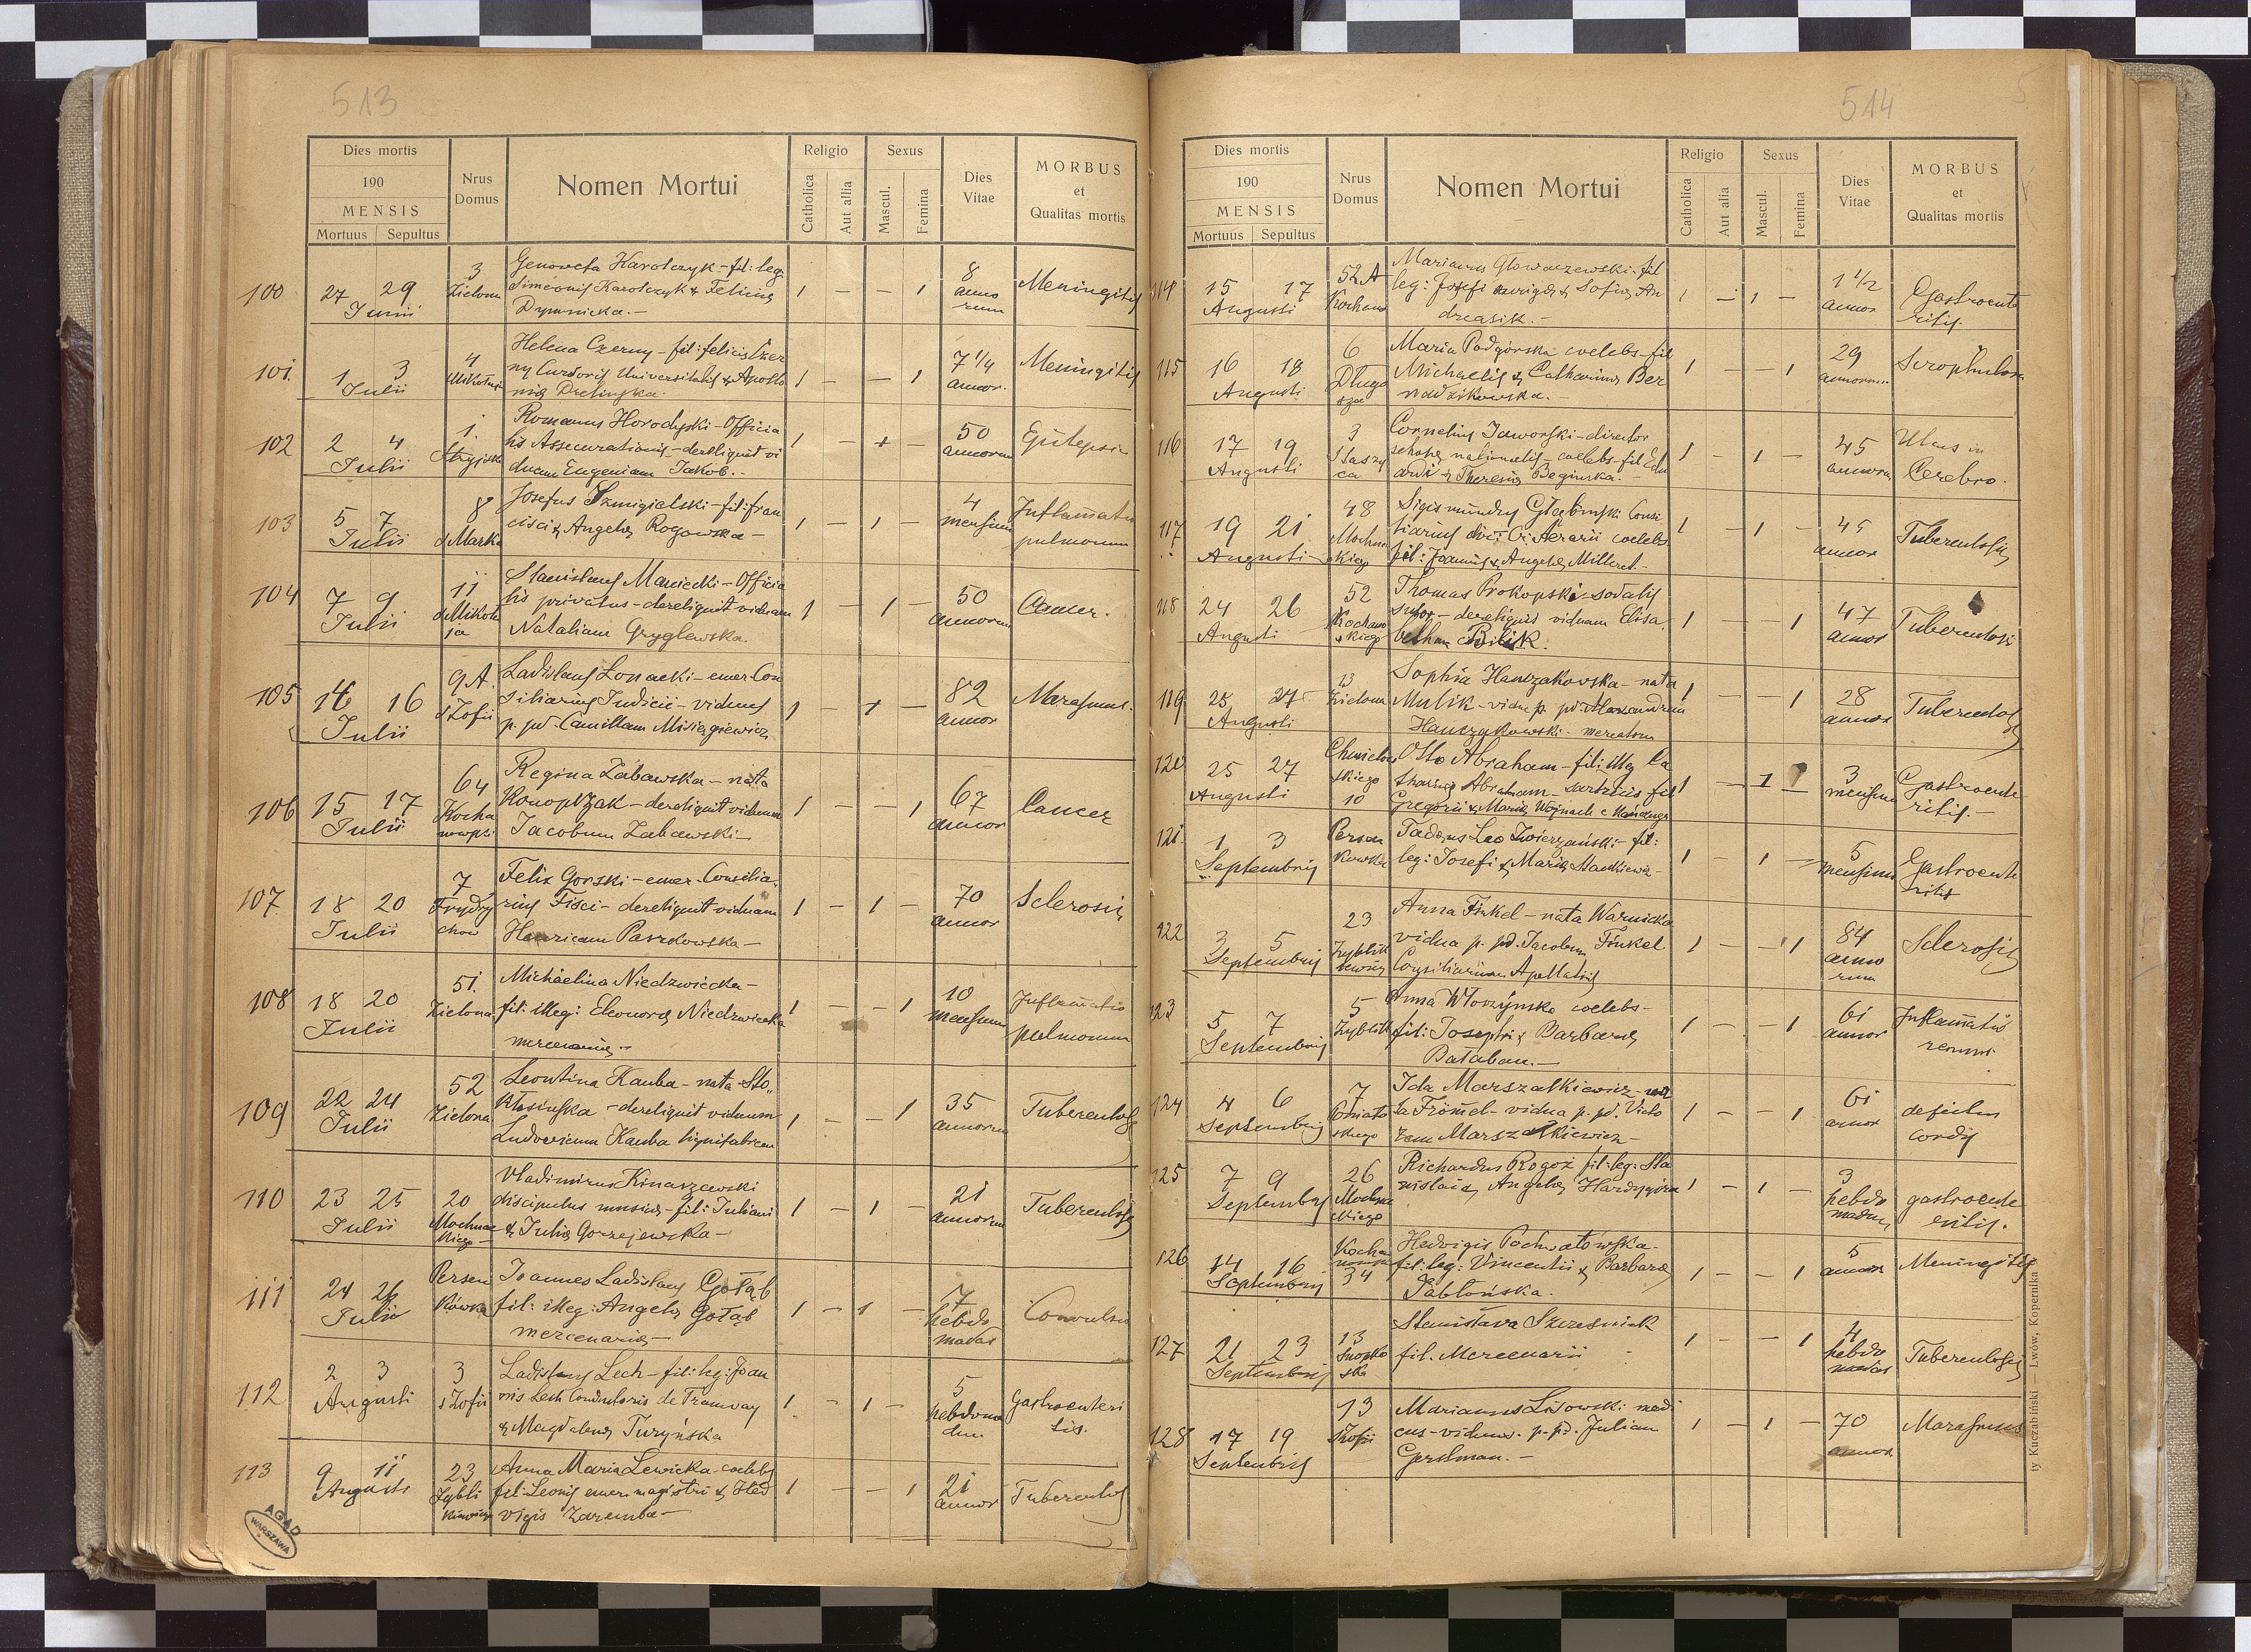 513
Dies mortis
190
MENSIS
Mortuus Sepultus
Nrus Domus
Nomen Mortui
Religio
Catholica
Aut allia
Sexus
Mascul.
Femina
Dies Vitae
MORBUS
et
Qualitas mortis
100 27 29 Junii 3 Zielona
Genovefa Karolczyk - fil: leg:
Simeonis Karolczyk & Felicia
Dymnicka. -
1 - - 1 8 annorum Meningitis
101. 1 3 Julii 4
Helena Czerny - fil: felicis Czer
ny Cursoris Universitatis & Apollo
nia
1 - - 1 7 1/4 annor. Meningitis
102 2 4 Julii 1. Stryjska
Romanus Horodyski - Officia
lis Assecurationis - dereliquit vi
duam Eugeniam Jakob. -
1 - 1 - 50 annorum Epilepsia
103 5 7 Julii 8 s Marka
Josefus Szmigielski - fil: fran
cisci & Angela Rogowska -
1 - 1 - 4 mensium Inflamatio pulmonum
104 7 9 Julii 11
Stanislaus Maniecki - Officia
lis privatus - dereliquit viduam
Nataliam Gryglewska.
1 - 1 - 50 annorum Cancer.
105 14 16 Julii 9A. s Zofii
Ladislaus Lonacki - emer Con
siliarius Judicii - viduus
p. pd. Camillam
1 - 1 - 82 annor Marasmus.
106 15 17 Julii 64
Regina Zabawska - nata
Konopczak - dereliquit viduum
Jacobum Zabawski -
1 - - 1 67 annor Cancer
107 18 20 Julii 7 Frydry chow
Felix Gorski - emer. Consilia
rius Fisci - dereliquit viduam
Henricam Paszkowska -
1 - 1 - 70 annor Sclerosis
108 18 20 Julii 51. Zielona
Michaelina Niedzwiecka -
fil: illeg: Eleonora Niedzwiecka
1 - - 1 10 mensium Inflamatio pulmonum
109 22 24 Julii 52 Zielona
Leontina Kauba - nata Sto„
kłosińska - dereliquit viduum
Ludovicum Kauba lignifabrum
1 - - 1 35 annorum Tuberculos
110 23 25 Julii 20 Mochnackiego -
Vladimirus Kinaszewski
discipulus musica - fil: Juliani
& Julia Gorzejewska -
1 - 1 - 21 annorum Tuberculosis
111 24 26 Julii Persenkówka
Joannes Ladislaus Gołąb
fil: illeg: Angela Gołąb
mercenaria -
1 - 1 - 7 hebdomadas Convulsio
112 2 3 Augusti 3 s Zofii
Ladislaus Lech - fil: leg: Joan
nis Lech Conductoris de Tramway
& Magdalena Turyńska
1 - 1 - 5 hebdoma dum Gastroenteri tis.
113 9 11 Augusti 23 Zybli kiewicza
Anna Maria Lewicka - coelebs
fil: Leonis emer. magistri & Hed
vigis Zaremba -
1 - - 1 21 annor Tuberculos
AGAD
WARSZAWA
514
Dies mortis
190
MENSIS
Mortuus Sepultus
Nrus Domus
Nomen Mortui
Religio
Catholica
Aut alia
Sexus
Mascul.
Femina
Dies Vitae
MORBUS
et
Qualitas mortis
114 15 17 Augusti 52A Kochano
Marianus Głowaczewski - fil
leg: Josefi aurigae & Sofia An
dreasik. -
1 - 1 - 1 1/2 annor Gastroente ritis.
115 16 18 Augusti 6 Długo sza
Maria Podgórska coelebs - fil
Michaelis & Catharina Ber
nadzikowska. -
1 - - 1 29 annorum Scrophulosa
116 17 19 Augusti 3 Staszy ca
Cornelius Jaworski - director
coelebs - fil Edu
ardi & Theresia Beginska. -
1 - 1 - 45 annorum Ulcus in Cerebro.
117 19 21 Augusti - 48 Mochna ckiego
Sigismundus Głębiński Consi
liarius Aerarii coelebs
fil: Joannis & Angela Milleret -
1 - 1 - 45 annor Tuberculosis
118 24 26 Augusti 52 Kochano wskiego
Thomas Prokopski - sodalis
sutor - dereliquit viduam Elisa
betham Bilik.
1 - - 1 47 annor Tuberculosis
119 25 27 Augusti 13 Zielona
Sophia Hanczakowska - nata
Mulik - vidua p. pd. Alexandrum
Hanczakowski - mercatorem
1 - - 1 28 annor Tuberculos
120 25 27 Augusti Chmielow skiego 10
Otto Abraham - fil: illeg Ca
tharina Abraham - sartricis fil
Gregorii & Maria Wojnach
1 - 1 3 mensium Gastroente ritis. -
121. 1 3 Septembris Persen kówka
Tadeus Leo Zwierzański - fil:
leg: Josefi & Maria Stankiewicz -
1 - 1 - 5 mensium Gastroente ritis
122 3 5 Septembris 23 Zyblikiewicza
Anna Finkel - nata Warnicka
vidua p. pd. Jacobum Finkel
Consiliarium Apellatis
1 - - 1 84 anno rum Sclerosis
123 5 7 Septembris 5 Zyblik
Anna Włoszyńska coelebs -
fil: Josephi & Barbara
Bałaban. -
1 - - 1 61 annor Inflamatio renum.
124 4 6 Septembris 7 Poniato wskiego
Ida Marszałkiewicz - na
ta Frömel - vidua p. pd. Victo
rem Marszałkiewicz -
1 - - 1 61 annor defectus cordis
125 7 9 Septembris 26 Mochna ckiego
Richardus Rogoż fil: leg: Sta
nislai & Angela
1 - 1 - 3 hebdo madum gastroente ritis.
126 14 16 Septembris Kocha nowsk 34
Hedvigis Podwatowska -
fil: leg: Vincentii & Barbara
Jabłońska.
1 - - 1 5 annor Meningitis
127 21 23 Septembris 13 Snopko ska
Stanisława Szczesniak
fil. Mercenarii
1 - - 1 4 hebdo madas Tuberculosis
128 17 19 Septembris 13 Zofii
Marianus Lisowski medi
cus - viduus. p. pd. Juliam
Gerstman. -
1 - 1 - 70 annor. Marasmus
ty Kuczabiński — Lwów, Kopernika